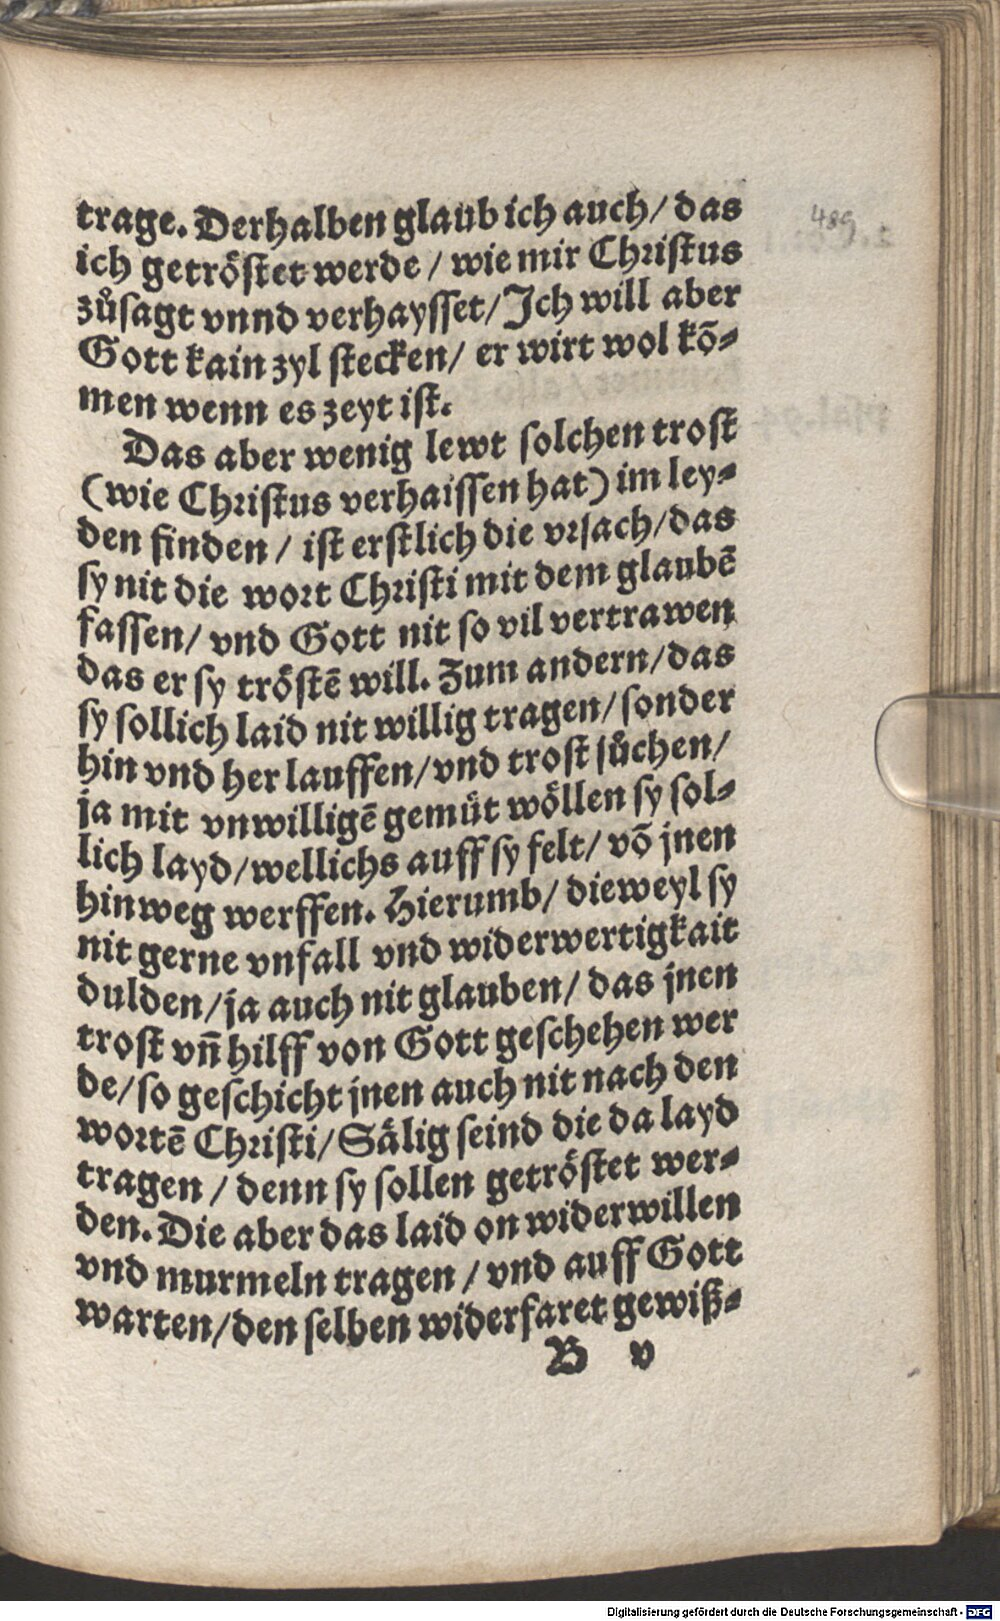 489
trage. Derhalben glaub ich auch/ das
ich getröstet werde / wie mir Christus
zůsagt vnnd verhaysset/ Ich will aber
Gott kain zyl stecken/ er wirt wol kō-
men wenn es zeyt ist.
Das aber wenig lewt solchen trost
(wie Christus verhaissen hat) im ley-
den finden / ist erstlich die vrsach/ das
sy nit die wort Christi mit dem glaubē
fassen/ vnd Gott nit so vil vertrawen
das er sy tröstē will. Zum andern/ das
sy sollich laid nit willig tragen/ sonder
hin vnd her lauffen/ vnd trost sůchen/
ja mit vnwilligē gemüt wöllen sy sol-
lich layd/ wellichs auff sy felt/ vō jnen
hinweg werffen. Hierumb/ dieweyl sy
nit gerne vnfall vnd widerwertigkait
dulden/ ja auch nit glauben/ das jnen
trost vn̄ hilff von Gott geschehen wer
de/ so geschicht jnen auch nit nach den
wortē Christi/ Sälig seind die da layd
tragen / denn sy sollen getröstet wer-
den. Die aber das laid on widerwillen
vnd murmeln tragen / vnd auff Gott
warten/ den selben widerfaret gewiß-
B v
Digitalisierung gefördert durch die Deutsche Forschungsgemeinschaft - DFG